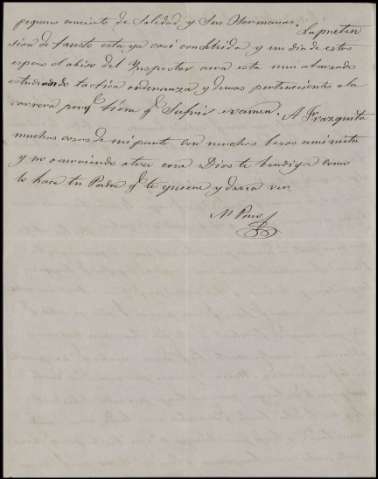 pequeno cuciente de Soledad y Sus Hermanas. La preten
sion de fausto esta ya casi conseguida y un dia de estos
espera el abiso del Ynspector aora esta mui atareado
estudiando tactica ordenanza y demas perteneciente a la
carrera porq.e tiene q.e Sufrir examen. A Frazquita
muchas cosas de mi parte con muchos besos a mi nieta
y no ocurriendo otra cosa Dios te bendiga como
lo hace tu Padre q.e te quiere y desea ver
M Pavo